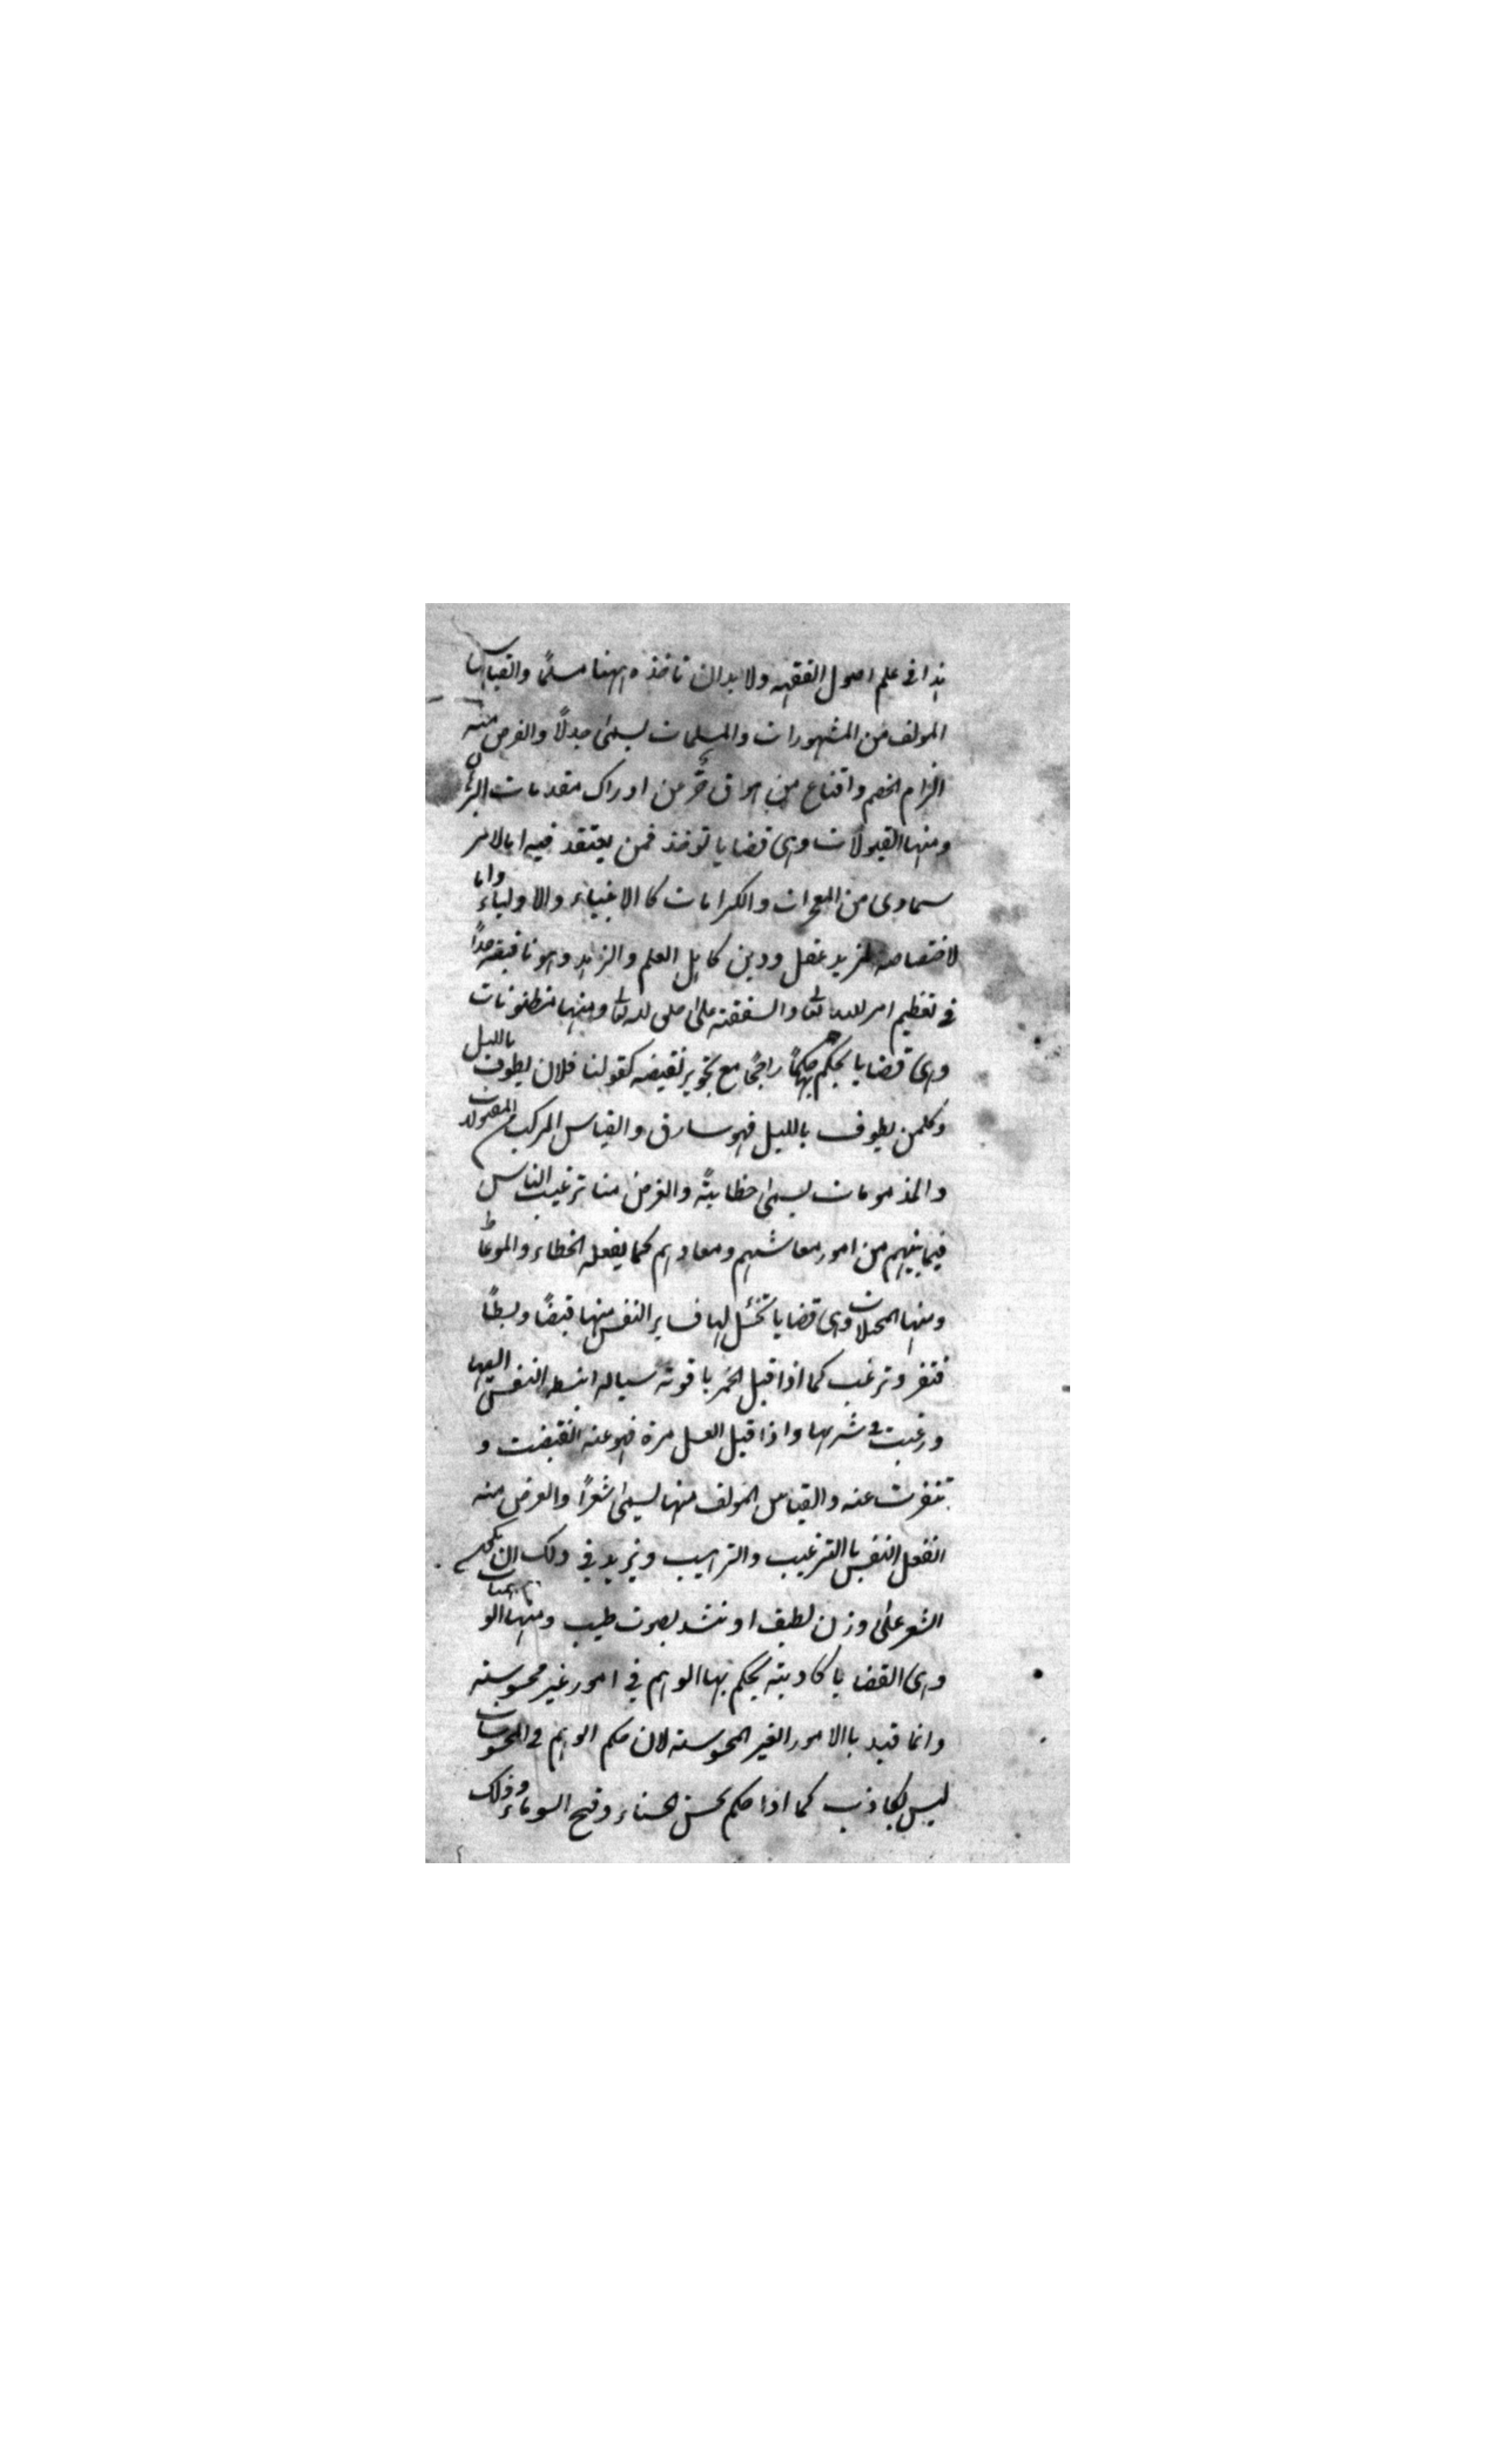 هذا فی علم اصول الفقهه ولا بدان تاخذه ههنا مسلمًا والقیاس
المولف من المشهورات والمسلمات یسمی جدلًا والغرض منه
الزام الخصم واقناع من هو قاصر من ادراک مقدمات البرهان
ومنها القبولات وهی قضایا توخذ فمن یعتقد فیه اما لامر
سماوی من المعجزات والکرامات کا الانبیاء والاولیاء واما
لاختصاصه لمزید عقل ودین کاهل العلم والزهد وهو نافعة جدًا
فی تعظیم امر لله تعالی والشفقة علی خلق لله تعالی ومنها منظنونات
وهی قضایا یحکم بها حکمًا راجحًا مع تجویز نقیضه کقولنا فلان یطوف باللیل
وکلمن یطوف باللیل فهو سارق والقیاس المرکب من المقبولات
والمذمومات یسمی خطابتًة والغرض منا ترغیب الناس
فیما بینهم من امور معاشهم ومعادهم کما یفعله الخطاء والموعاظ
ومنها المخلات وهی قضایا تخیل لها فسایر النفس منها قبضًا وبسطًا
فتنفر وترغب کما اذا قیل الخمر یاقوتة سیاله انبسط النفس الیها
ورغبت فی شربها واذا قیل العسل مرة فهو عنه انقبضت و
تنفرت عنه والقیاس المولف منها یسمی شعرًا والغرض منه
انفعل النفس باالترغیب والترهیب ویزید فی ذلک ان یکون
الشعر علی وزن لطیف او ینشد بصوت طیب ومنها الوهمیات
وهی القضایا کاذبة یحکم بها الوهم فی امور غیر محسوسته
وانما قید باالامور الغیر المحسوسته لان حکم الوهم فی المحسوسات
لیس بکاذب کما اذا حکم بحسن الحسناء وقبح السوءاء وذلک